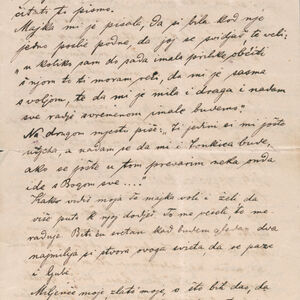 čitati ti pismo.
Majka mi je pisala, da si bila kod nje
jedno poslie podne, da joj se sviđaš te veli:
„u koliko sam do sada imala prilike občiti
s njom te ti moram reć, da mi je sasma
s voljom, te da mi je mila i draga i nadam
se radje s vremenom imalo budemo"
Na drugom mjestu piše: „ti jedini si mi jošte
utjeha, a nadam se da mi i Tonkica bude,
ako se jošte u tom prevarim neka onda
ide s Bogom sve...."
Kako vidiš moja te majka voli i želi, da
više puta k njoj dodješ. To me veseli, to me
raduje. Bit ću sretan kad budem gledao dva
najmilija si stvora ovoga svieta, da se paze
i ljube.
Miljenče moje zlato moje, o što bih dao, da